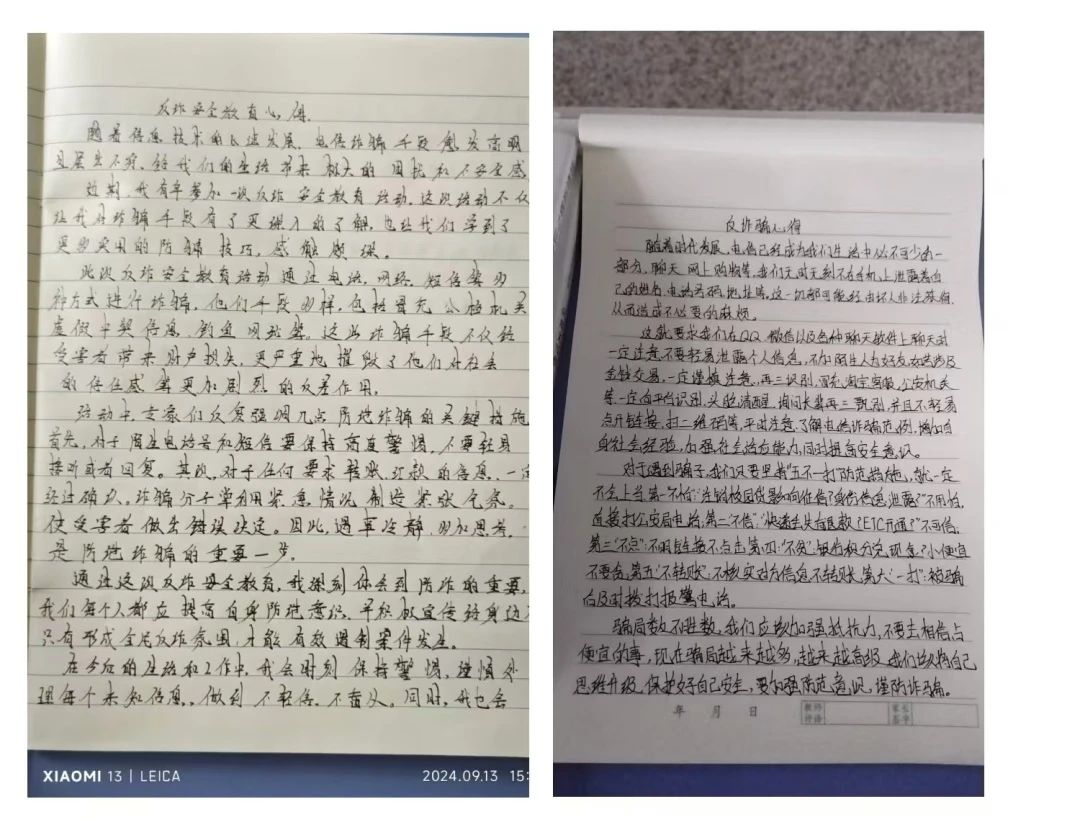 反诈安全教育心得
随着信息技术的飞速发展,电信诈骗手段愈发高明
且层出不穷,给我们的生活带来极大的困扰和不安全感
近期,我有幸参加一次反诈安全教育活动,这次活动不仅
让我对诈骗手段有了更深入的了解,也让我们学到了
更多实用的防骗技巧,感触颇深。
此次反诈安全教育活动通过电话、网络、短信等多
种方式进行诈骗,他们手段多样,包括冒充公检机关
虚假中奖信息、钓鱼网站等。这些诈骗手段不仅给
受害者带来财产损失,更严重地摧毁了他们对社会
的信任感,有更加剧烈的反差作用。
活动中,专家们反复强调几点防范诈骗的关键措施
首先,对于陌生电话号和短信要保持高度警惕,不要轻易
接听或者回复。其次,对于任何要求转账汇款的信息,一定
经过确认。诈骗分子常利用紧急情况制造紧张气氛,
使受害者做出错误决定。因此,遇事冷静,多加思考,
是防范诈骗的重要一步。
通过这次反诈安全教育,我深刻体会到防诈的重要,
我们每个人都应提高自身防范意识,并积极宣传给身边人
只有形成全民反诈氛围,才能有效遏制案件发生。
在今后的生活和工作中,我会时刻保持警惕,谨慎处
理每个未知信息,做到不轻信、不盲从。同时,我也会
XIAOMI 13 | LEICA
2024.09.13 15:
反诈骗心得
随着时代发展,电信已经成为我们生活中必不可少的一
部分,聊天、网上购物等,我们无时无刻不在手机上泄露着自
己的姓名、电话号码、地址等,这一切都可能经由坏人非法获得,
从而造成不必要的麻烦。
这就要求我们在QQ、微信以及各种聊天软件上聊天时
一定注意,不要轻易泄露个人信息,不加陌生人为好友,如若涉及
金钱交易,一定谨慎注意,再三识别,冒充淘宝客服、公安机关
等一定向平台识别,头脑清醒,询问长辈再三甄别,并且不轻易
点开链接,扫二维码等,平时注意,了解电信诈骗范例,增加自
身社会经验,加强社会适应能力,同时提高安全意识。
对于遇到骗子,我们只要坚持“五不一打”防范措施,就一定
不会上当,第一“不怕”:注销校园贷影响征信?身份信息泄露?不用怕,
直接打公安局电话,第二“不信”:“快递丢失自愿退款?ETC开通?”不可信,
第三“不点”:不明链接不点击,第四:“不贪”:银行积分兑现金?小便宜
不要贪,第五“不转账”:不核实对方信息不转账,第六“一打”:被骗
后及时拨打报警电话。
骗局数不胜数,我们应该加强抵抗力,不要去相信占
便宜的事,现在骗局越来越多,越来越高级,我们该将自己
思维升级,保护好自己安全,要加强防范意识,谨防诈骗。
年 月 日
教师评语
家长签字